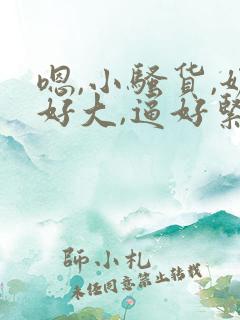 嗯,小骚货,
好大,逼好紧
師小札
未经同意禁止转载